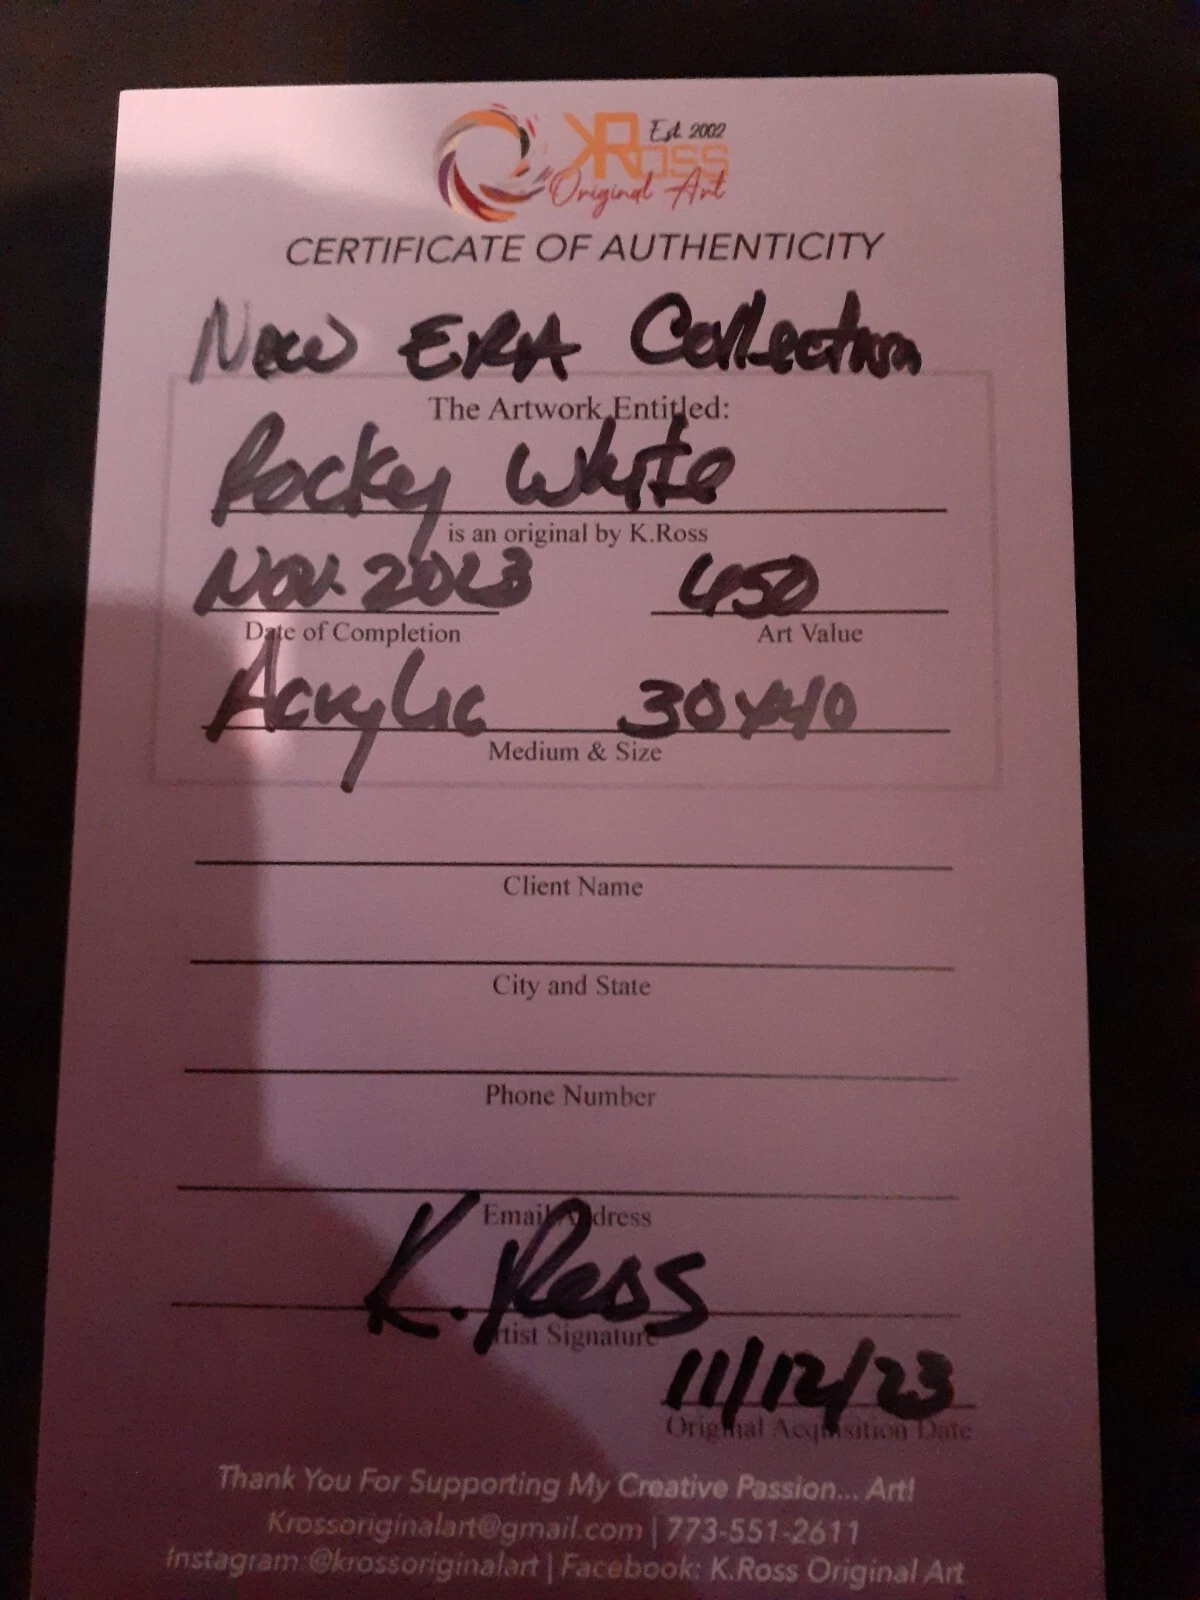 Est. 2002
KRoss
Original Art
CERTIFICATE OF AUTHENTICITY
New ERA Collection
The Artwork Entitled:
Rocky White
is an original by K.Ross
Nov. 2023 450
Date of Completion Art Value
Acrylic 30x40
Medium & Size
Client Name
City and State
Phone Number
Email Address
K. Ross
Artist Signature
11/12/23
Original Acquisition Date
Thank You For Supporting My Creative Passion... Art!
Krossoriginalart@gmail.com | 773-551-2611
Instagram:@krossoriginalart | Facebook: K.Ross Original Art